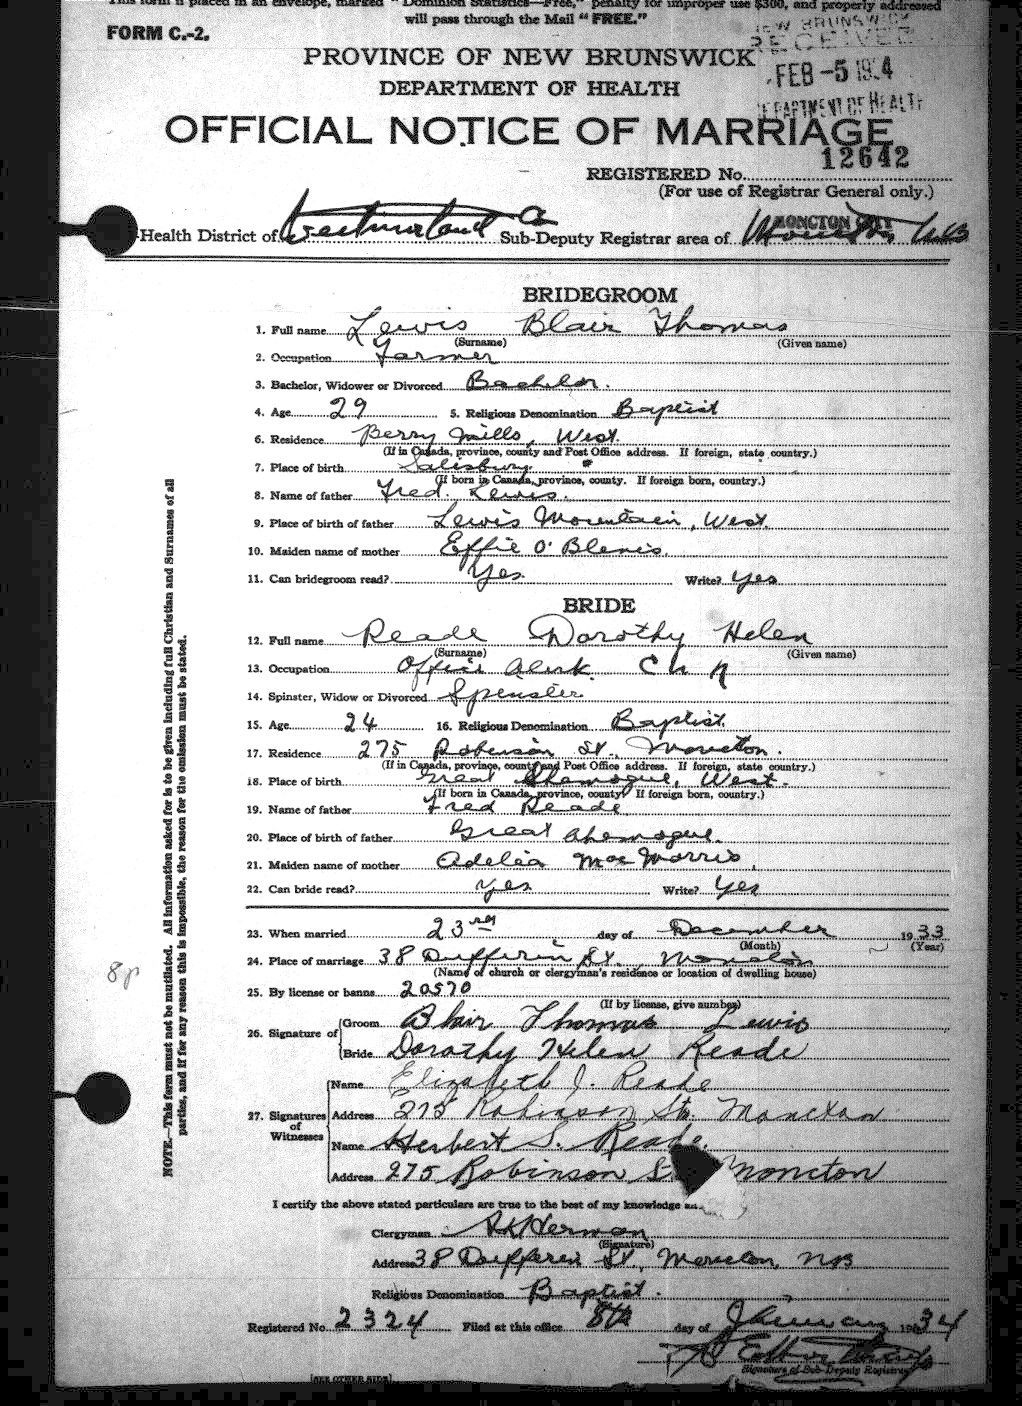 This form if placed in an envelope, marked "Dominion Statistics—Free," penalty for improper use $300, and properly addressed
will pass through the Mail "FREE."
FORM C.-2.
NEW BRUNSWICK
RECEIVED
FEB -5 1934
DEPARTMENT OF HEALTH
PROVINCE OF NEW BRUNSWICK
DEPARTMENT OF HEALTH
OFFICIAL NOTICE OF MARRIAGE
REGISTERED No. 12642
(For use of Registrar General only.)
MONCTON CITY
Health District of Westmorland Co Sub-Deputy Registrar area of Moncton, N.B
BRIDEGROOM
1. Full name Lewis Blair Thomas
(Surname) (Given name)
2. Occupation Farmer
3. Bachelor, Widower or Divorced Bachelor.
4. Age 29 5. Religious Denomination Baptist
6. Residence Berry Mills, West.
(If in Canada, province, county and Post Office address. If foreign, state country.)
7. Place of birth Salisbury "
(If born in Canada, province, county. If foreign born, country.)
8. Name of father Fred. Lewis.
9. Place of birth of father Lewis Mountain, West.
10. Maiden name of mother Effie O'Blenis.
11. Can bridegroom read? Yes. Write? yes
BRIDE
12. Full name Reade Dorothy Helen
(Surname) (Given name)
13. Occupation Office Clerk. C N R
14. Spinster, Widow or Divorced Spinster.
15. Age 24 16. Religious Denomination Baptist.
17. Residence 275 Robinson St., Moncton.
(If in Canada, province, county and Post Office address. If foreign, state country.)
18. Place of birth Great Shemogue, West.
(If born in Canada, province, county. If foreign born, country.)
19. Name of father Fred Reade
20. Place of birth of father Great Shemogue.
21. Maiden name of mother Adelia MacMorris.
22. Can bride read? yes Write? yes
23. When married 23rd day of December 1933
(Month) (Year)
24. Place of marriage 38 Dufferin St., Moncton
(Name of church or clergyman's residence or location of dwelling house)
25. By license or banns 20570
(If by license, give number)
26. Signature of Groom Blair Thomas Lewis
Bride Dorothy Helen Reade
27. Signatures of Witnesses
Name Elizabeth J. Reade
Address 275 Robinson St. Moncton
Name Herbert S. Reade.
Address 275 Robinson St. Moncton
I certify the above stated particulars are true to the best of my knowledge an
Clergyman A K Herman
(Signature)
Address 38 Dufferin St., Moncton, NB
Religious Denomination Baptist.
Registered No. 2324 Filed at this office 8th day of January 1934
Signature of Sub-Deputy Registrar
[SEE OTHER SIDE]
NOTE.—This form must not be mutilated. All information asked for is to be given including full Christian and Surnames of all
parties, and if for any reason this is impossible, the reason for the omission must be stated.
8p